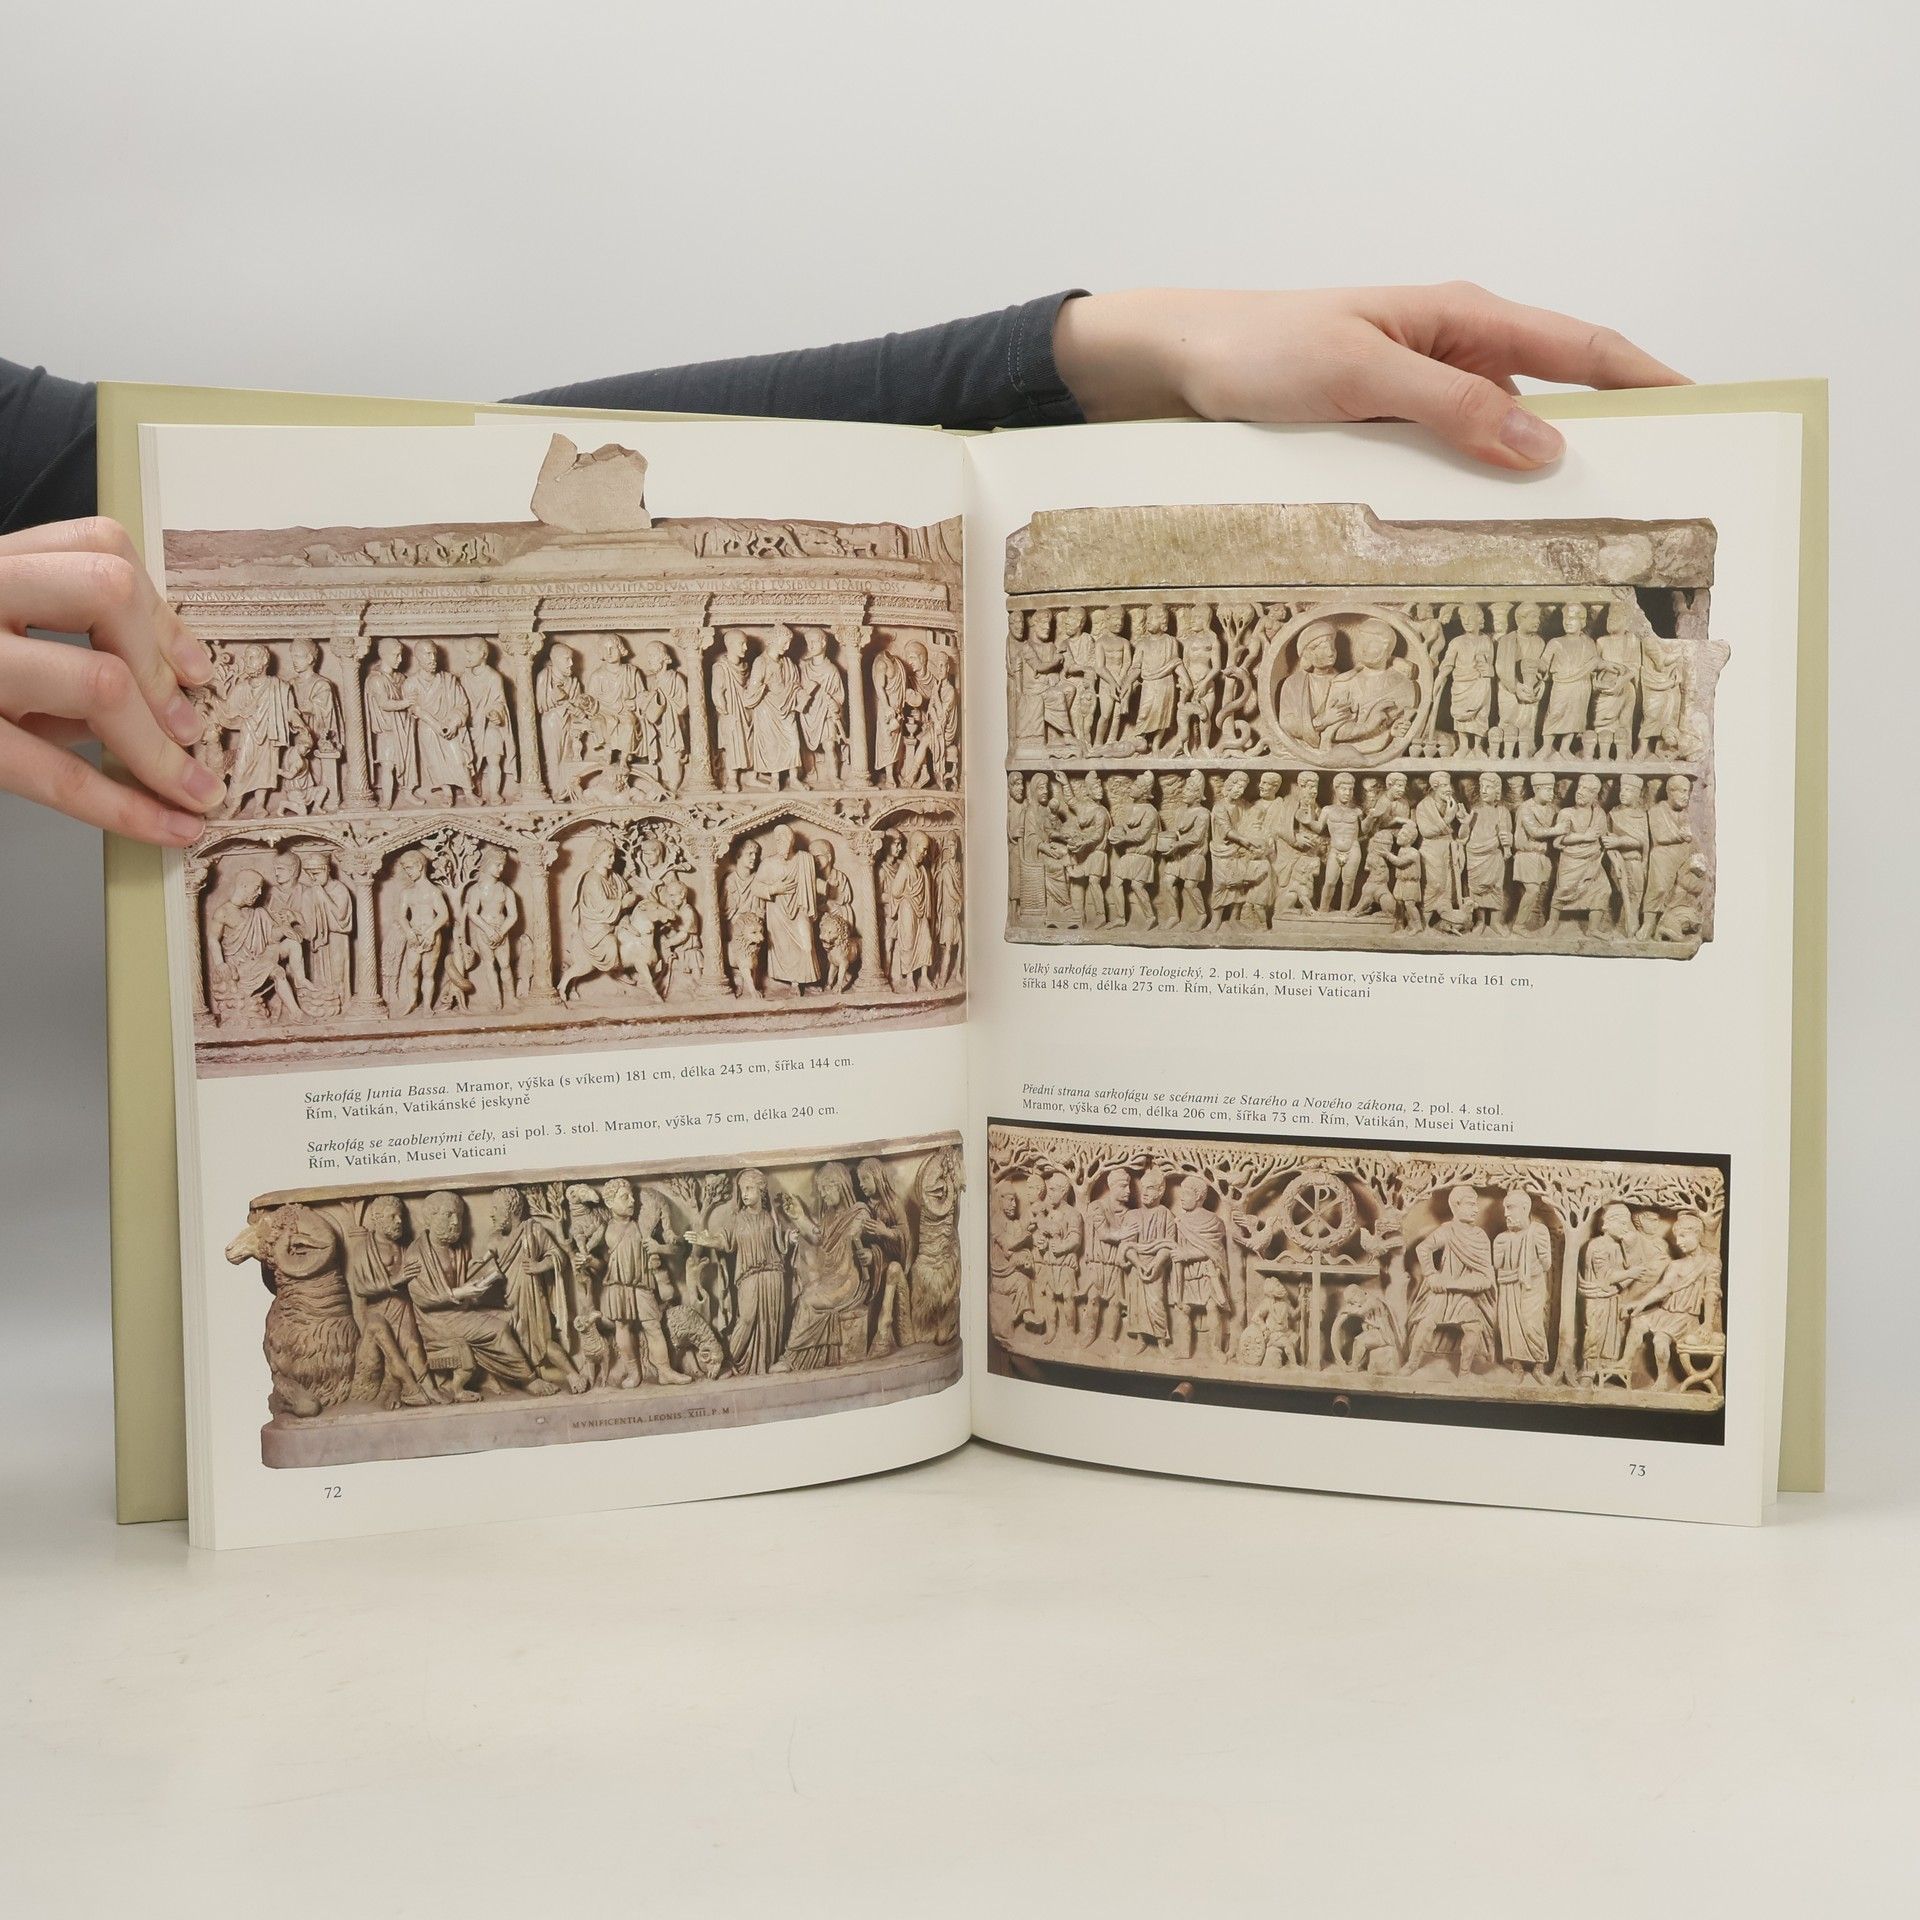 Sarkofág Junia Bassa. Mramor, výška (s víkem) 181 cm, délka 243 cm, šířka 144 cm.
Řím, Vatikán, Vatikánské jeskyně
Sarkofág se zaoblenými čely, asi pol. 3. stol. Mramor, výška 75 cm, délka 240 cm.
Řím, Vatikán, Musei Vaticani
MVNIFICENTIA. LEONIS. XIII. P. M
72
Velký sarkofág zvaný Teologický, 2. pol. 4. stol. Mramor, výška včetně víka 161 cm,
šířka 148 cm, délka 273 cm. Řím, Vatikán, Musei Vaticani
Přední strana sarkofágu se scénami ze Starého a Nového zákona, 2. pol. 4. stol.
Mramor, výška 62 cm, délka 206 cm, šířka 73 cm. Řím, Vatikán, Musei Vaticani
73